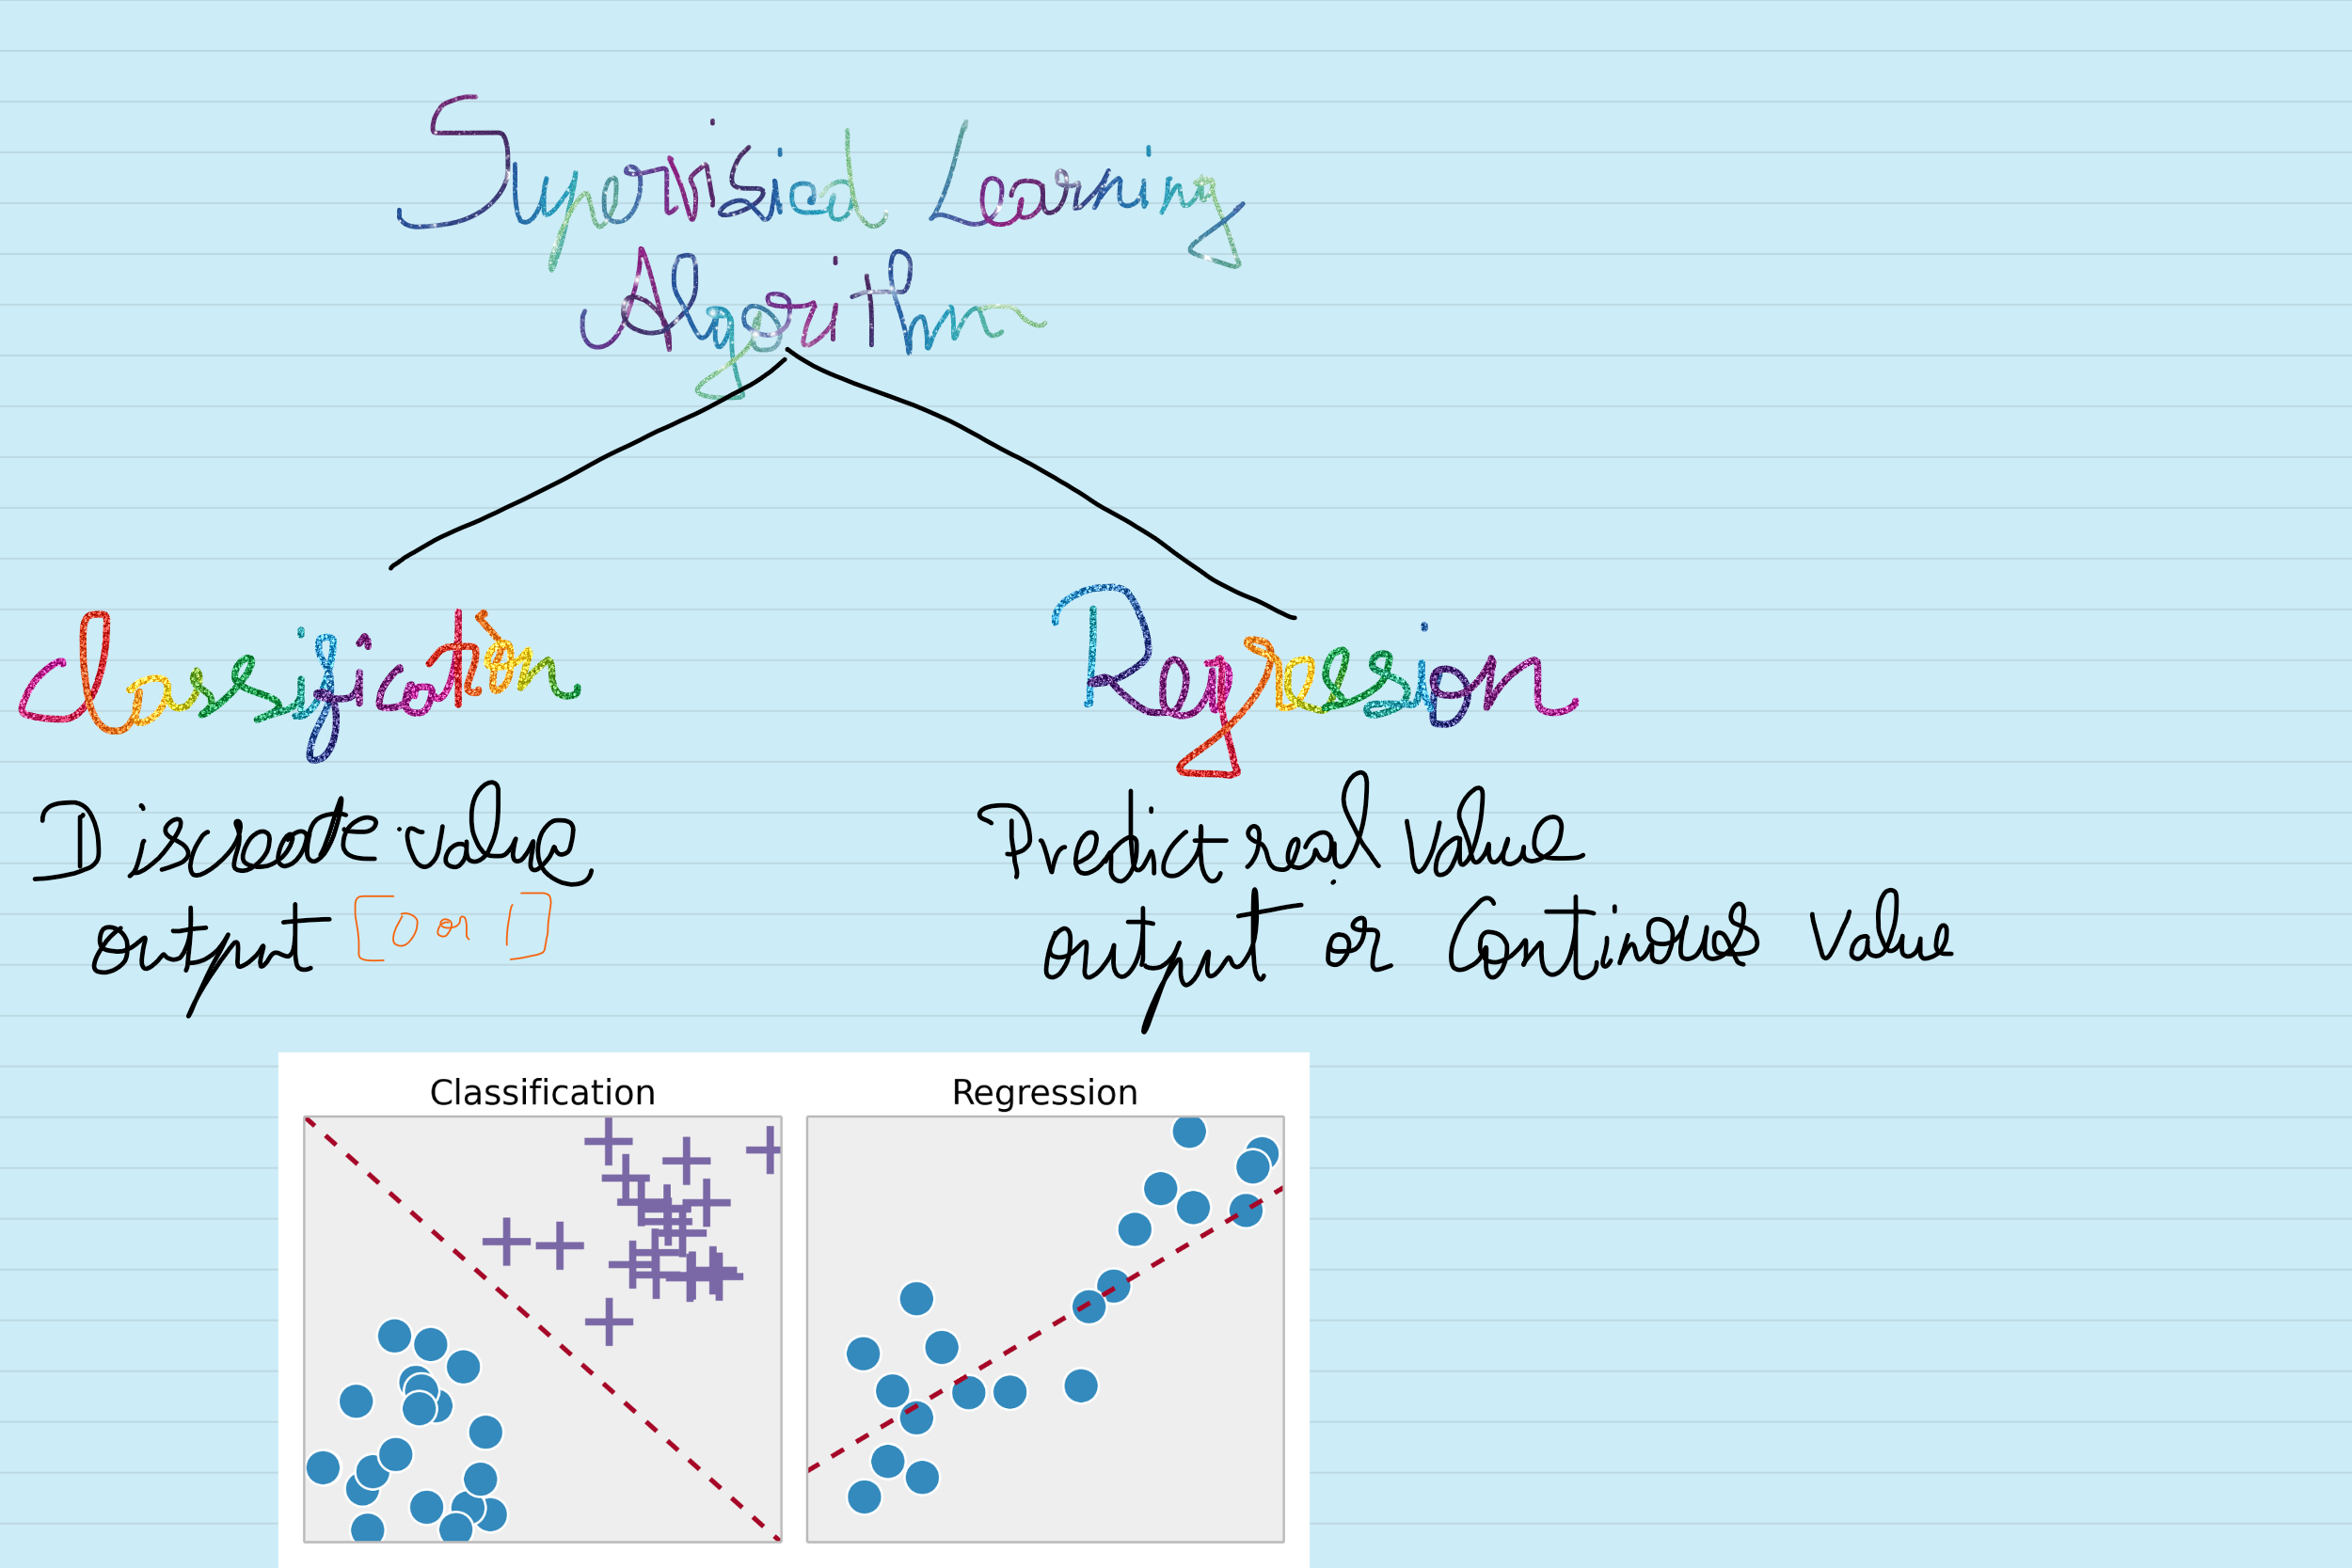 Supervisied Learning
Algorithm
Classification
Regression
Discreate value
output [0 or 1]
Predict real value
output or Continous value
Classification
Regression